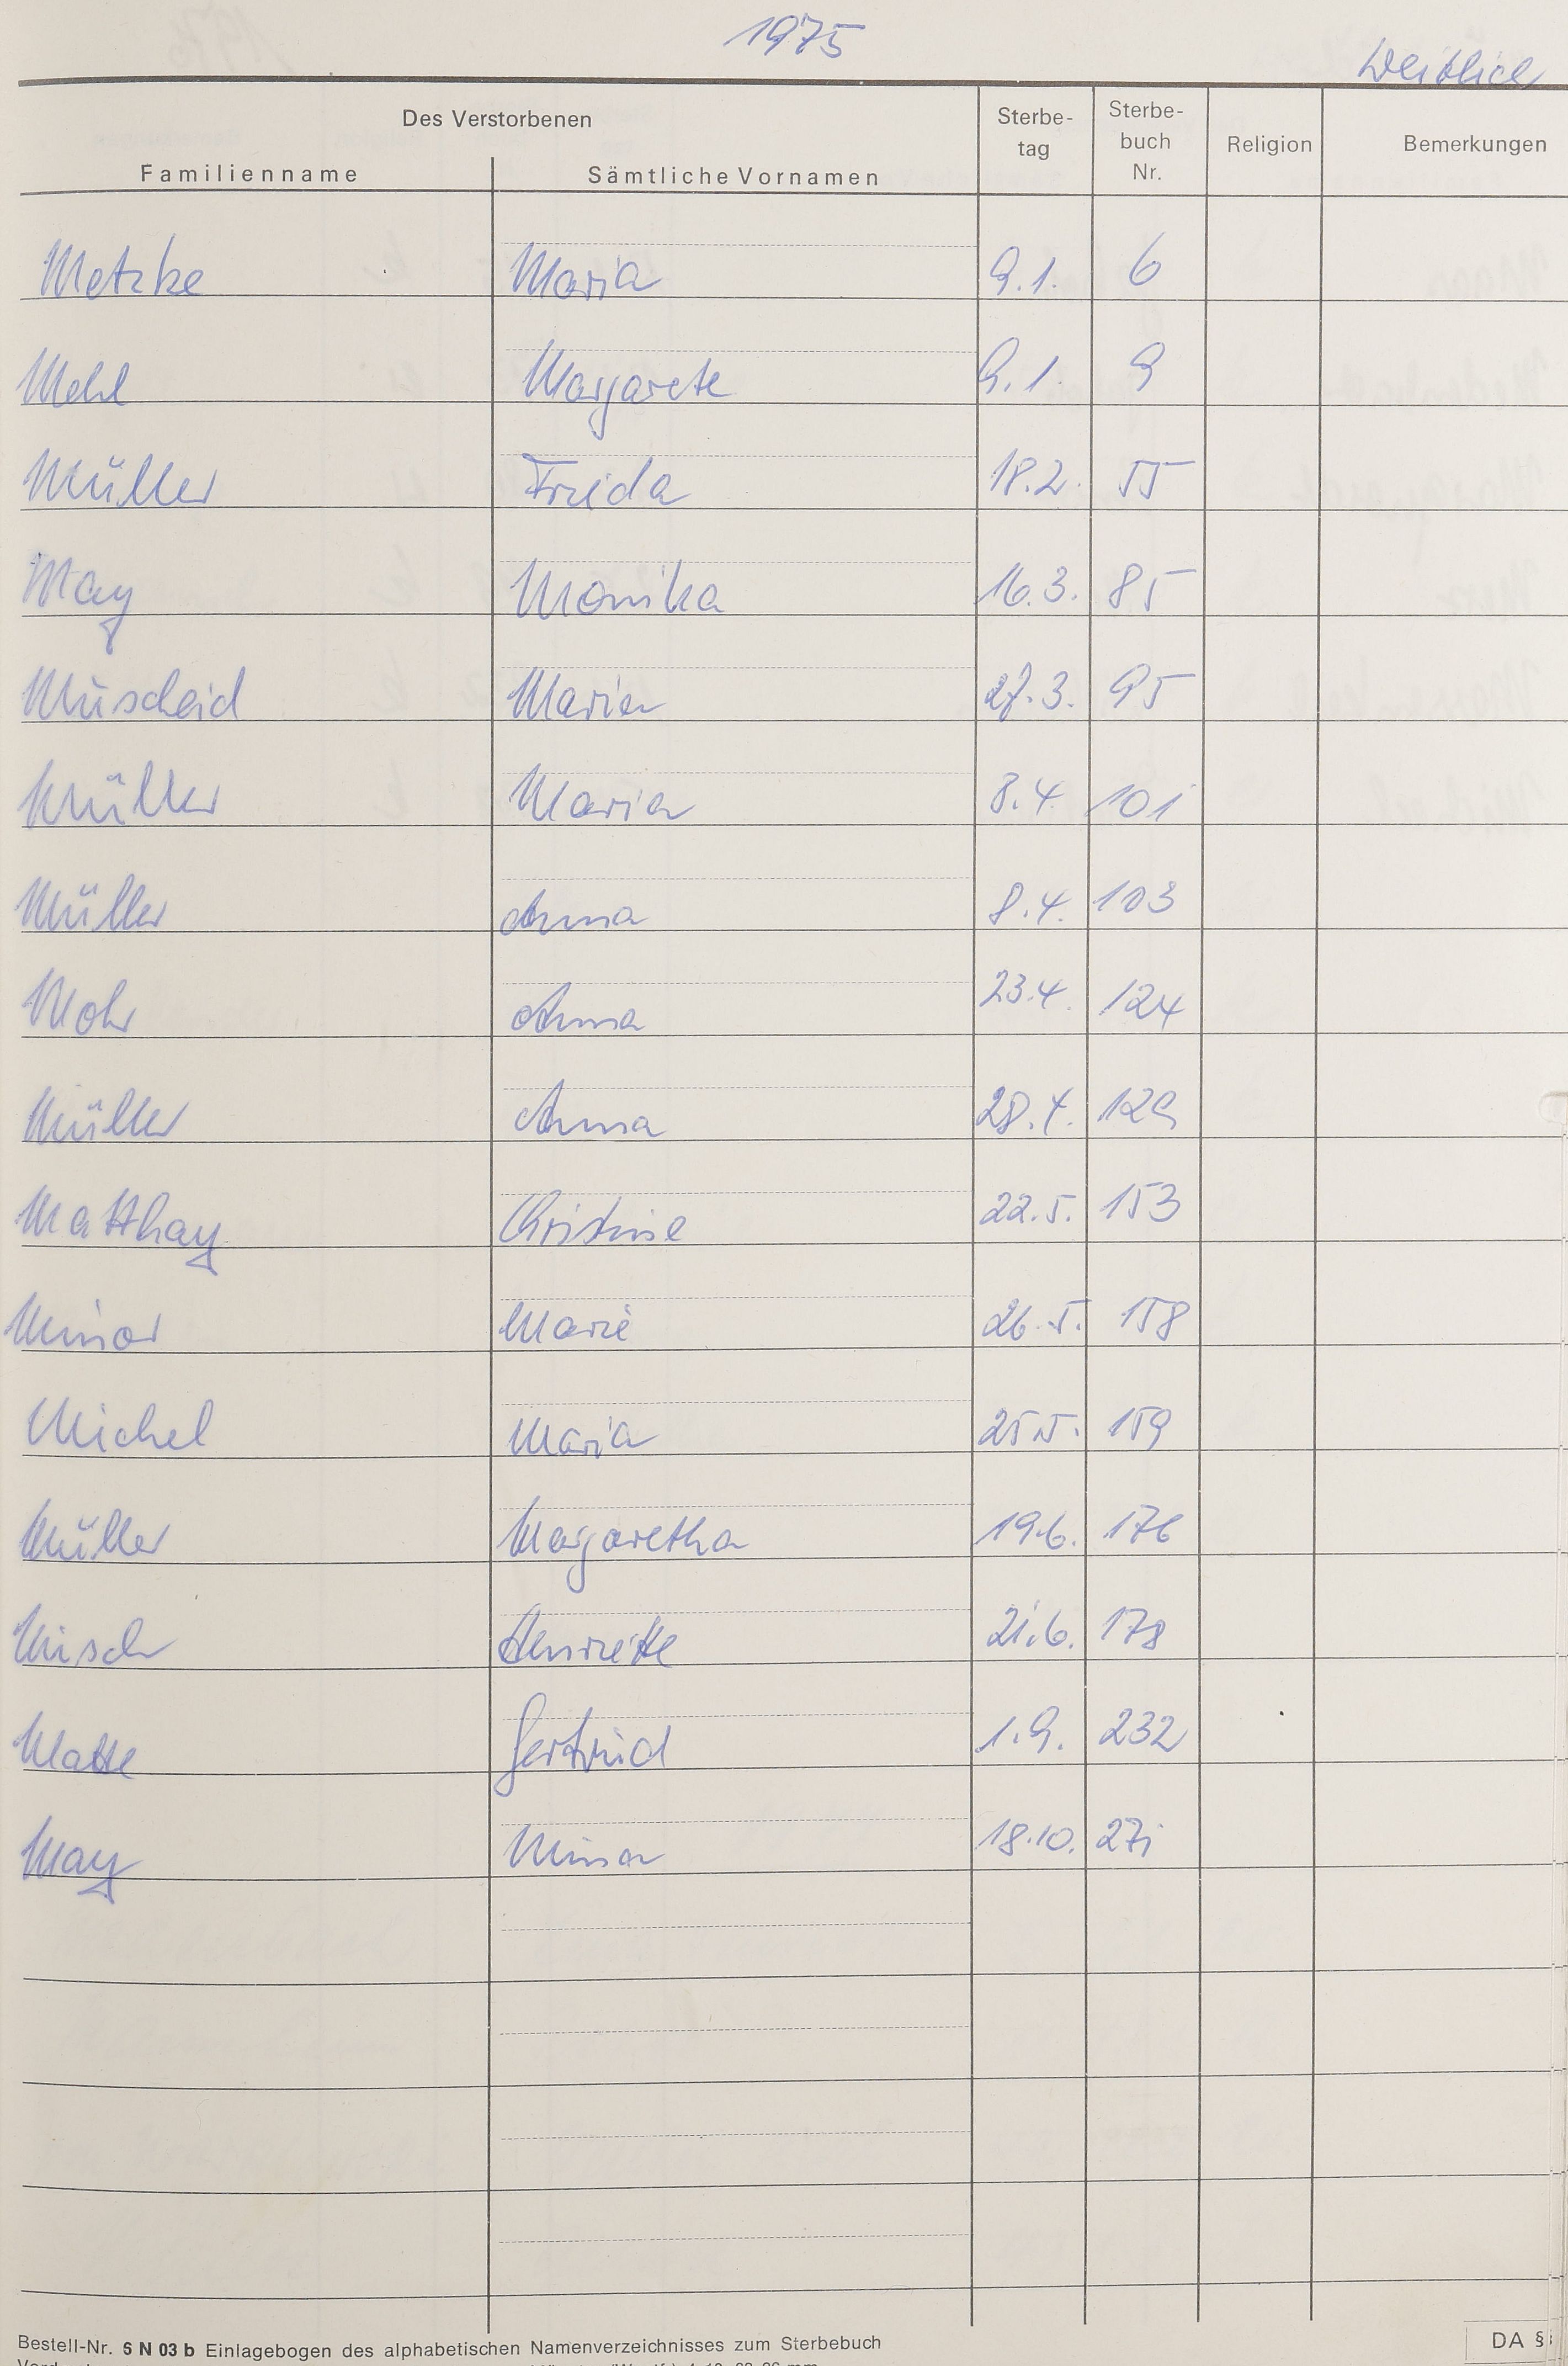 1975
Weiblich
Des Verstorbenen
Familienname
Sämtliche Vornamen
Sterbe-
tag
Sterbe-
buch
Nr.
Religion
Bemerkungen
Metzke Maria 9.1. 6
Mehl Margarete 9.1. 9
Müller Frieda 18.2. 55
May Monika 16.3. 85
Müscheid Maria 27.3. 95
Müller Maria 8.4. 101
Müller Anna 8.4. 103
Mohr Anna 23.4. 124
Müller Anna 28.4. 129
Matthay Christine 22.5. 153
Minor Marie 26.5. 158
Michel Maria 25.5. 159
Müller Margaretha 19.6. 176
Misch Henriette 21.6. 178
Matte Gertrud 1.9. 232
May Minna 18.10. 271
Bestell-Nr. 6 N 03 b Einlagebogen des alphabetischen Namenverzeichnisses zum Sterbebuch
DA §